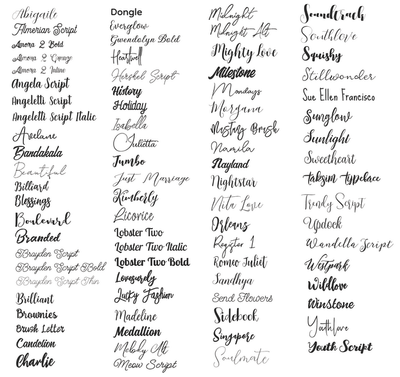 Abigaile
Amerian Script
Amora 2 Bold
Amora 2 Gposy
Amora 2 Inline
Angela Script
Angeletti Script
Angeletti Script Italic
Avelane
Bandakala
Beautiful
Billiard
Blessings
Boulevard
Branded
Brayden Script
Brayden Script Bold
Brayden Script Thin
Brilliant
Brownies
Brush Letter
Candelion
Charlie
Dongle
Everglow
Gwendolyn Bold
Heartwell
Hershel Script
History
Holiday
Isabella
Julietta
Jumbo
Just Marriage
Kimberly
Licorice
Lobster Two
Lobster Two Italic
Lobster Two Bold
Lovesurely
Lucky Fashion
Madeline
Medallion
Melody Alt
Meow Script
Midnight
Midnight Alt
Mighty Love
Milestone
Mondays
Morgana
Mustafig Brush
Namila
Nayland
Nightstar
Nita Love
Orleans
Register 1
Romeo Juliet
Sandhya
Send Flowers
Sidebook
Singapore
Soulmate
Soundtrack
Southlove
Squishy
Stillwonder
Sue Ellen Francisco
Sunglow
Sunlight
Sweetheart
Taksim Typeface
Trendy Script
Updock
Wandella Script
Westpark
Wildlove
Winstone
Youthlove
Youth Script